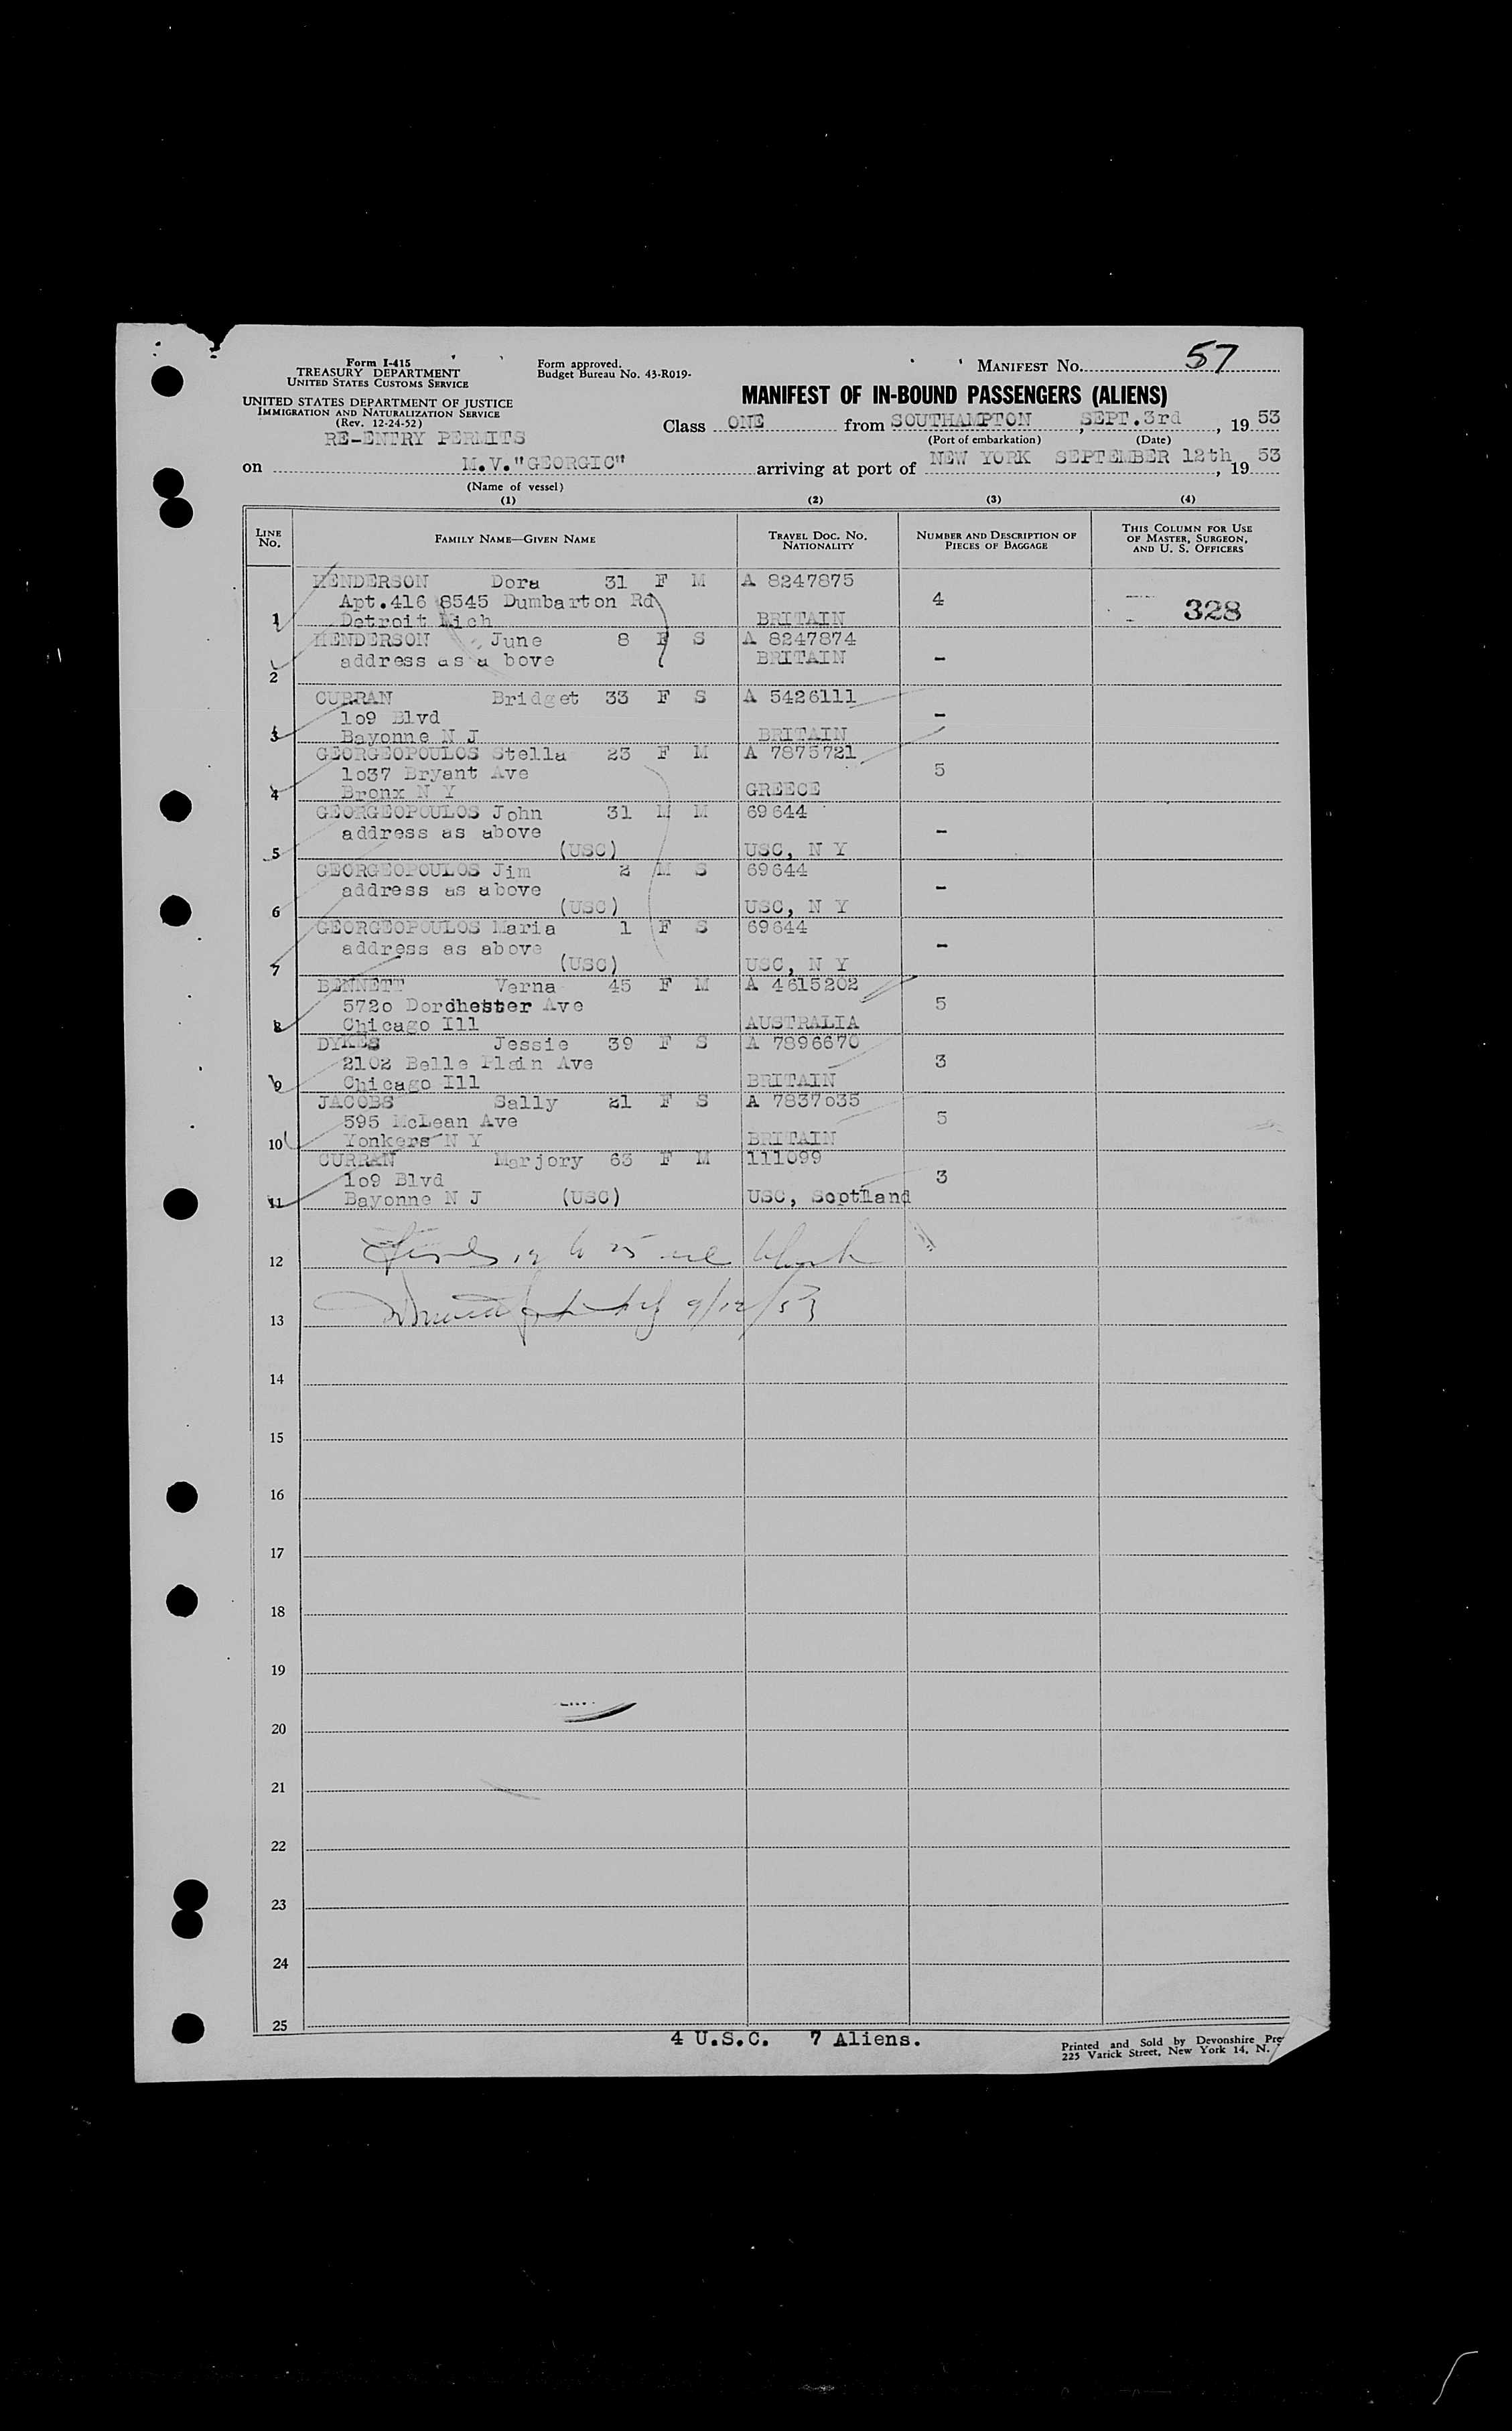 Form I-415
TREASURY DEPARTMENT
UNITED STATES CUSTOMS SERVICE
UNITED STATES DEPARTMENT OF JUSTICE
IMMIGRATION AND NATURALIZATION SERVICE
(Rev. 12-24-52)
RE-ENTRY PERMITS
Form approved.
Budget Bureau No. 43-R019-
MANIFEST NO. 57
MANIFEST OF IN-BOUND PASSENGERS (ALIENS)
Class ONE from SOUTHAMPTON, SEPT.3rd, 19 53
(Port of embarkation) (Date)
on M.V."GEORGIC" arriving at port of NEW YORK SEPTEMBER 12th, 19 53
(Name of vessel)
(1) (2) (3) (4)
LINE NO. FAMILY NAME—GIVEN NAME TRAVEL DOC. NO. NATIONALITY NUMBER AND DESCRIPTION OF PIECES OF BAGGAGE THIS COLUMN FOR USE OF MASTER, SURGEON, AND U. S. OFFICERS
HENDERSON Dora 31 F M A 8247875
Apt.416 8545 Dumbarton Rd 4 328
1 Detroit Mich BRITAIN
HENDERSON June 8 F S A 8247874
address as a bove BRITAIN -
2
CURRAN Bridget 33 F S A 5426111
1o9 Blvd -
3 Bayonne N J BRITAIN
GEORGEOPOULOS Stella 23 F M A 7875721
1o37 Bryant Ave 5
4 Bronx N Y GREECE
GEORGEOPOULOS John 31 M M 69644
address as above -
5 (USC) USC, N Y
GEORGEOPOULOS Jim 2 M S 69644
address as above -
6 (USC) USC, N Y
GEORGEOPOULOS Maria 1 F S 69644
address as above -
7 (USC) USC, N Y
BENNETT Verna 45 F M A 4615202
572o Dordhester Ave 5
8 Chicago Ill AUSTRALIA
DYKES Jessie 39 F S A 7896670
2102 Belle Plain Ave 3
9 Chicago Ill BRITAIN
JACOBS Sally 21 F S A 7837o35
595 McLean Ave 5
10 Yonkers N Y BRITAIN
CURRAN Marjory 63 F M 111099
1o9 Blvd 3
11 Bayonne N J (USC) USC, Scotland
12 Lines 12 to 25 incl blank
13 9/12/53
14
15
16
17
18
19
20
21
22
23
24
25
4 U.S.C. 7 Aliens.
Printed and Sold by Devonshire
225 Varick Street, New York 14, N.